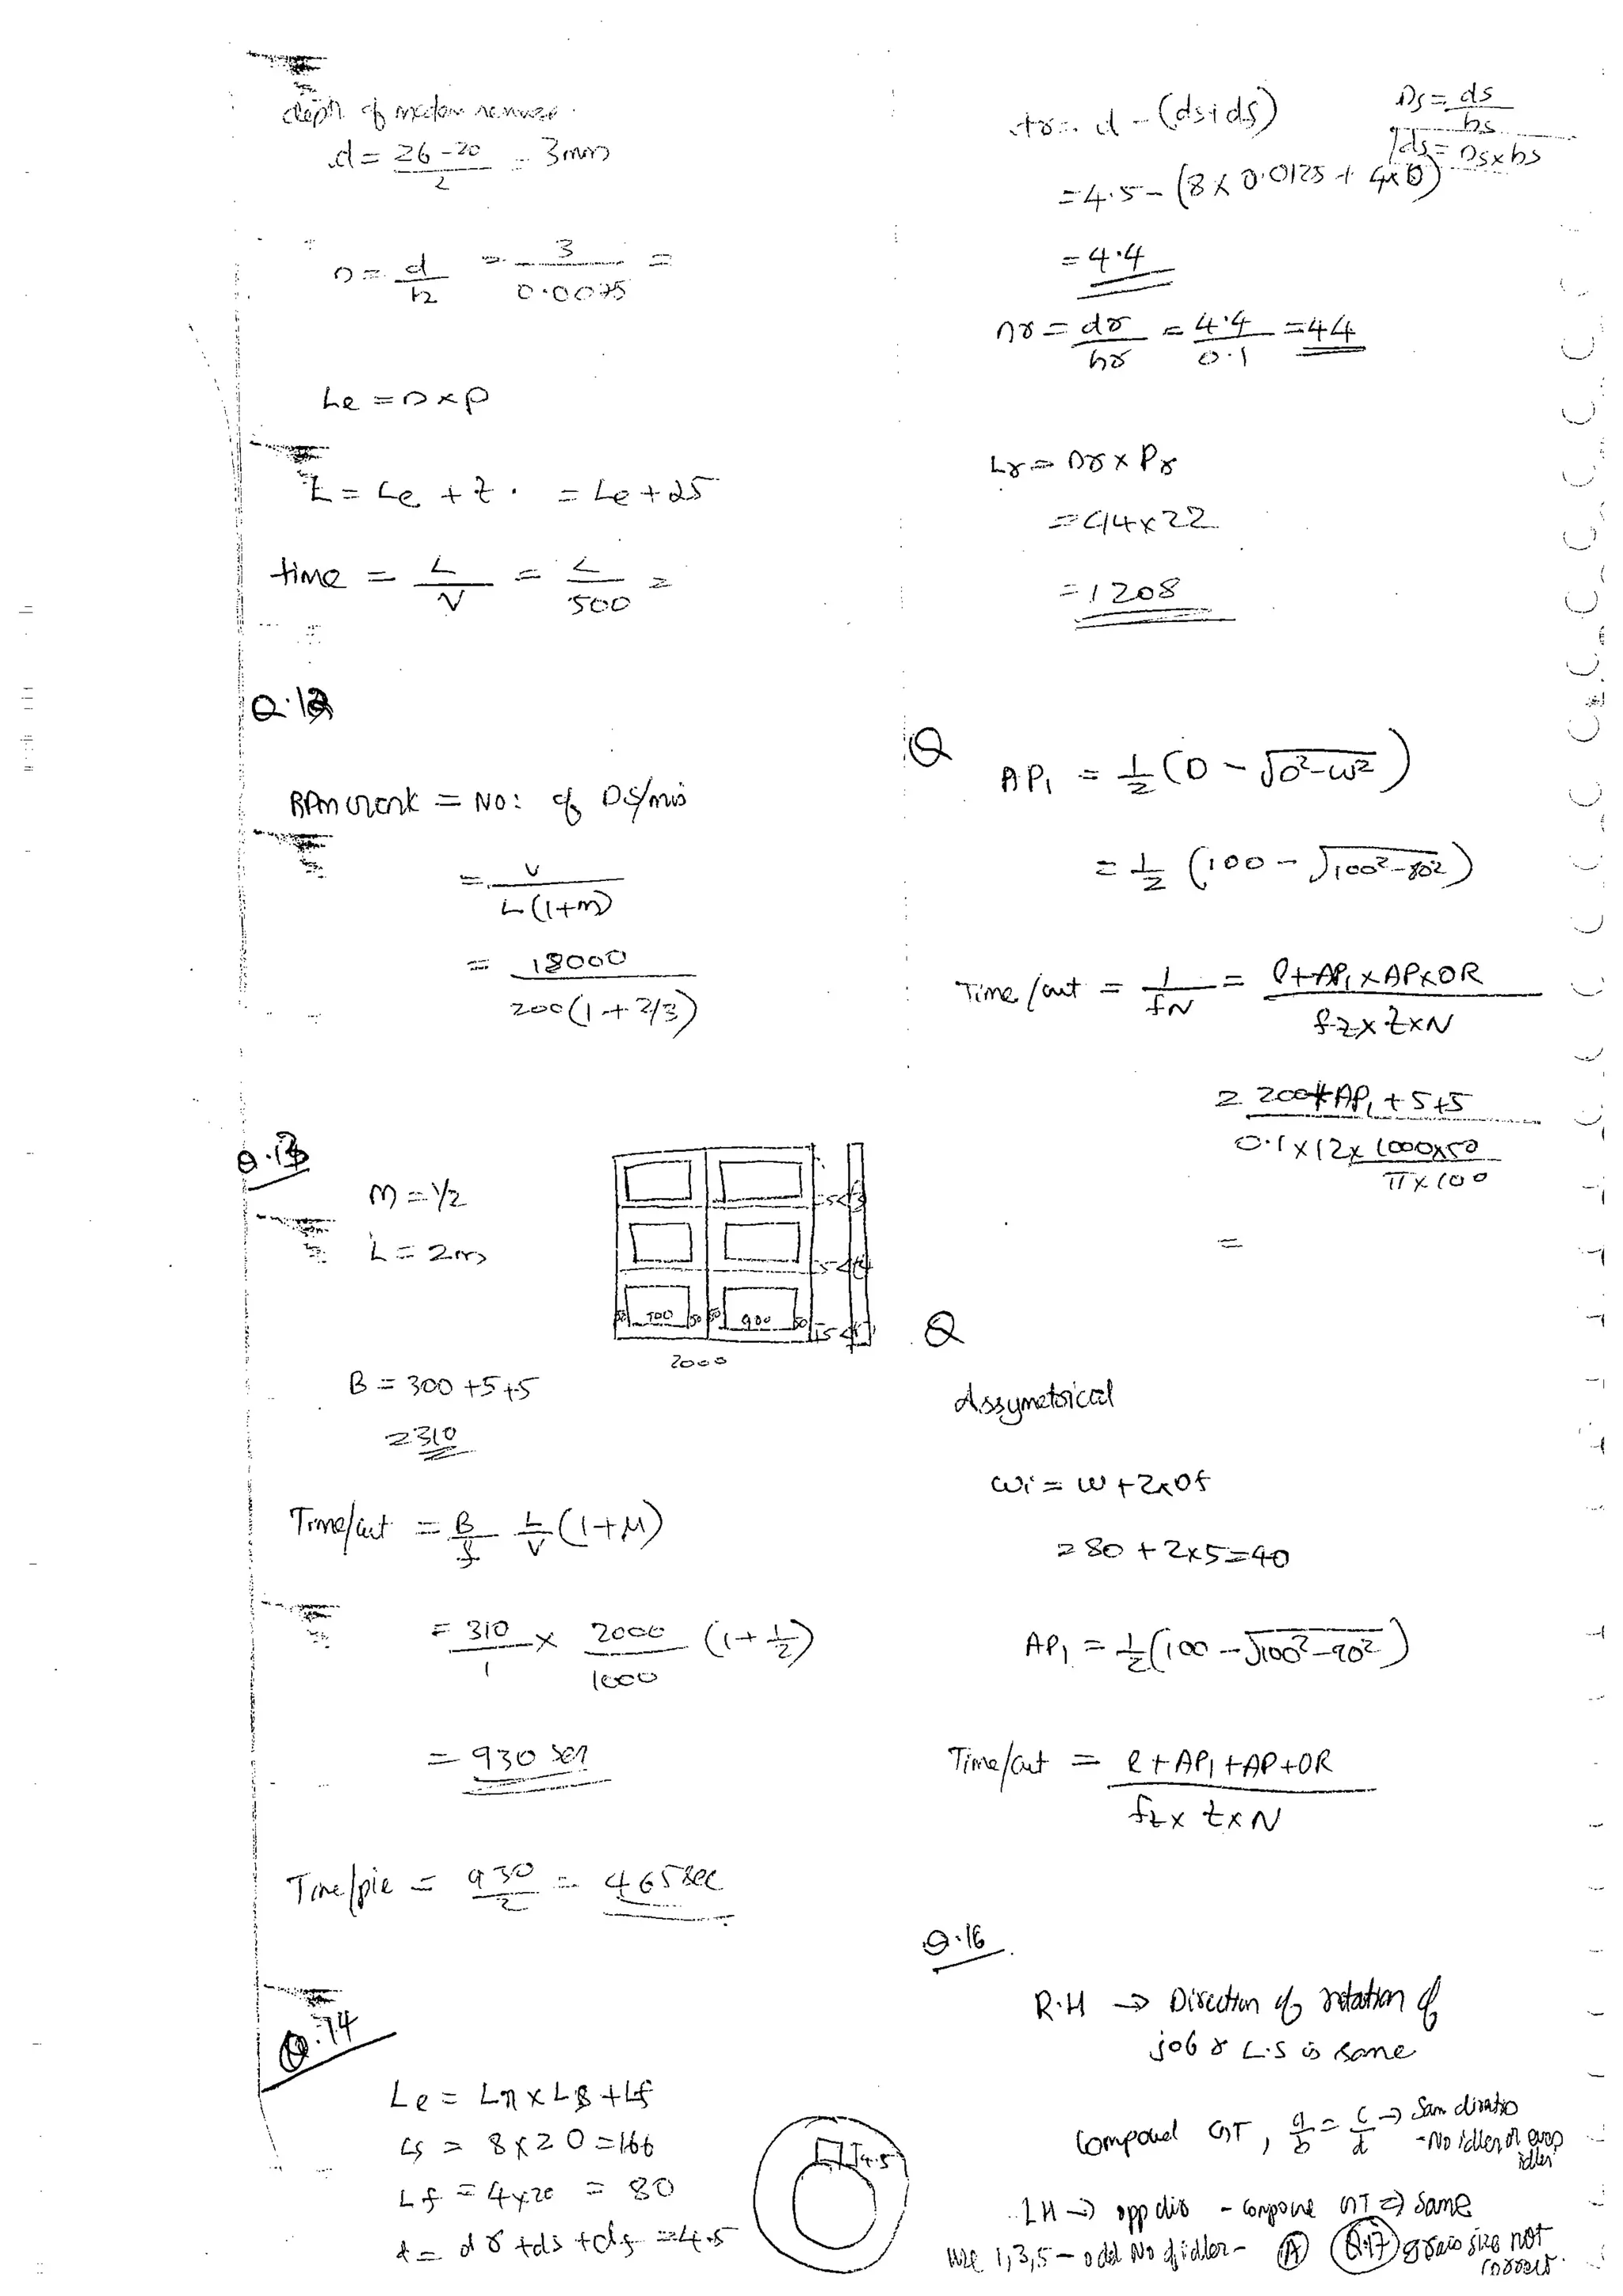 depth of
d = 26-20/2 = 3mm
n = d/h = 3/0.0075 =
Le = n × p
L = Le + z . = Le + 25
time = L/V = L/500 =
Q.12
RAM crank = No: of DS/min
= V/L(1+m)
= 18000/200(1+2/3)
Q.13
m = 1/2
L = 2m
50 900 50 50 900 50
2000
B = 300 +5 +5
= 310
Time/cut = B/f L/V (1+M)
= 310/1 × 2000/1000 (1+1/2)
= 930 sec
Time/pie = 930/2 = 465 sec
Q.14
Le = Lr × Ls + Lf
Ls = 8×20 = 160
Lf = 4×20 = 80
d = dr + ds + df = 4.5
4.5
dr = d - (ds+df)
ns = ds/hs
ds = ns×hs
= 4.5 - (8 × 0.0125 + 4×0)
= 4.4
nr = dr/hr = 4.4/0.1 = 44
Lr = nr × Pr
= 44×22
= 1208
Q
AP1 = 1/2 (D - √D²-w²)
= 1/2 (100 - √100²-80²)
Time/cut = L/fN = l+AP1×AP×OR/fz×Z×N
= 200+AP1+5+5/0.1×12×1000×50/π×100
=
Q
Assymetrical
wi = w + 2×Of
= 80 + 2×5 = 90
AP1 = 1/2 (100 - √100²-90²)
Time/cut = l + AP1 + AP + OR/fz × Z × N
Q.16
R.H → Direction of rotation of
job & L.S is same
Compound GT, a/b = c/d → Sam diratio
- No idler or even
idler
LH → opp dir - compoue GT ⇒ Same
use 1,3,5 - odd No of idler - A Q.17 grain size not
correct.